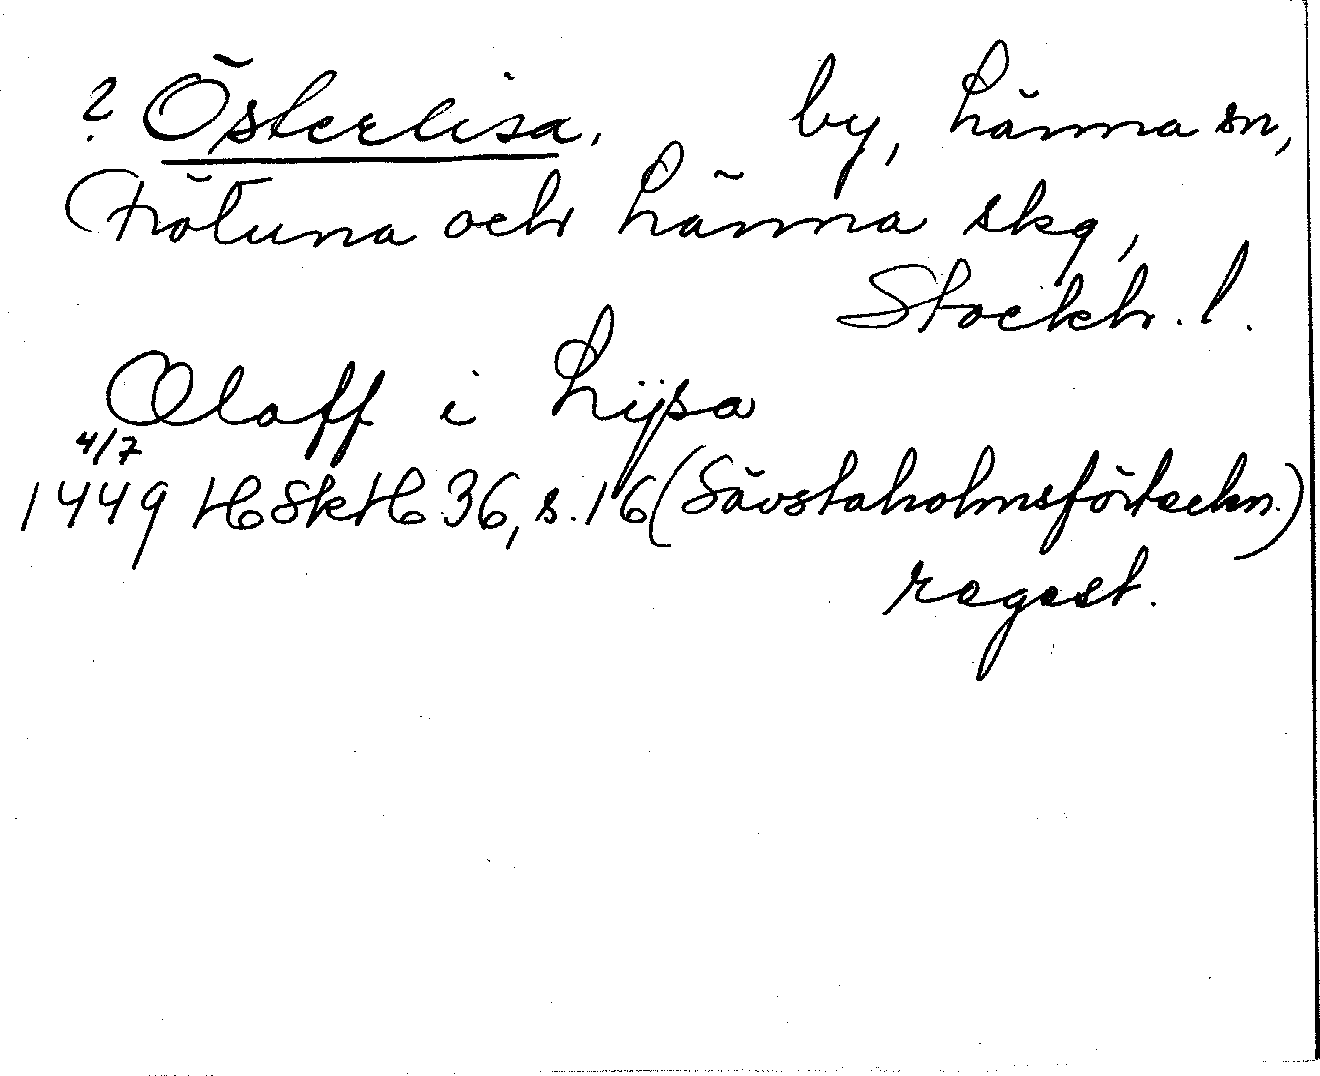 ? Österlisa, by, Länna sn,
Frötuna och Länna skg,
Stockh. l.
Olaff i Lijsa
4/7
1449 HSkH 36, s. 16 (Sävstaholmsförteckn.)
regest.